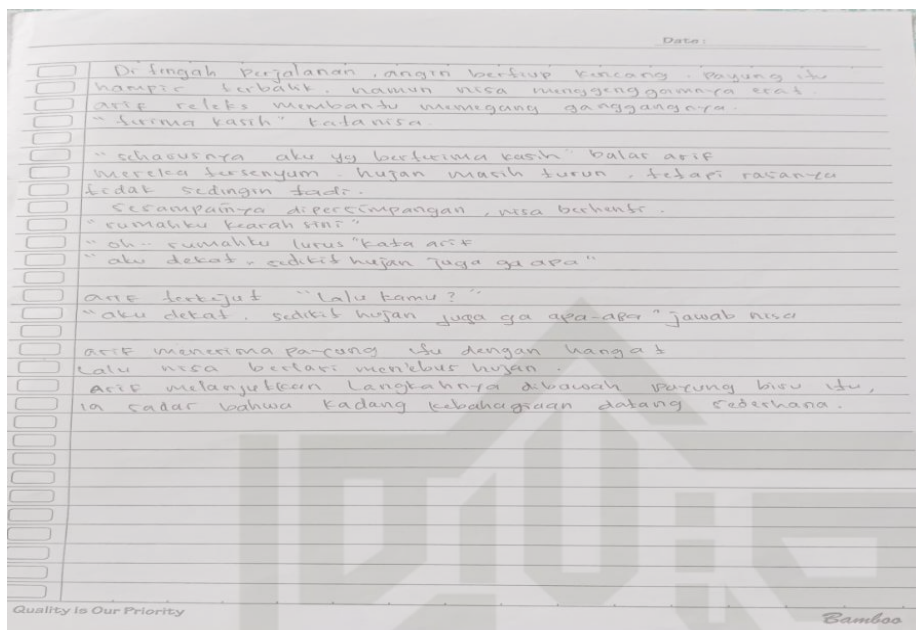 Date:
Di tengah perjalanan, angin bertiup kencang. payung itu
hampir terbalik. namun nisa menggenggamnya erat.
arif releks membantu memegang ganggangnya.
"terima kasih" kata nisa.
"seharusnya aku yg berterima kasih" balas arif
mereka tersenyum. hujan masih turun, tetapi rasanya
tidak sedingin tadi.
sesampainya dipersimpangan, nisa berhenti.
"rumahku kearah sini"
"oh.. rumahku lurus" kata arif
"aku dekat. sedikit hujan juga ga apa"
arif terkejut "lalu kamu?"
"aku dekat. sedikit hujan juga ga apa-apa" jawab nisa
arif menerima payung itu dengan hangat
Lalu nisa berlari menebus hujan.
arif melanjutkan Langkahnya dibawah payung biru itu,
ia sadar bahwa kadang kebahagiaan datang sederhana.
Quality is Our Priority
Bamboo